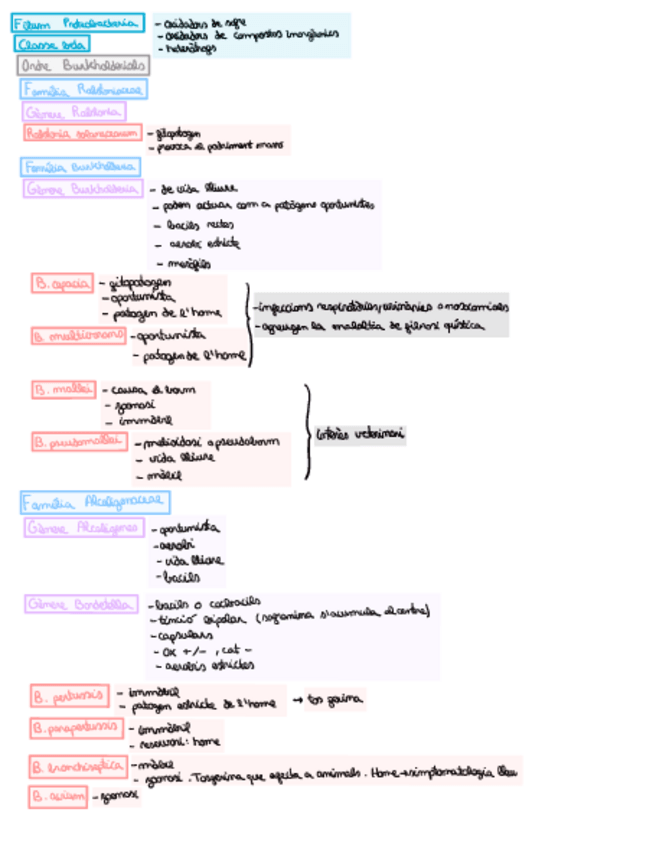 Fílum Proteobacteria
- Oxidadors de sofre
- Oxidadors de compostos inorgànics
- heteròtrofs
Classe beta
Ordre Burkholderials
Família Ralstoniaceae
Gènere Ralstonia
Ralstonia solanacearum
- fitopatogen
- provoca el podriment marró
Família Burkholderia
Gènere Burkholderia
- de vida lliure
- poden actuar com a patògens oportunistes
- bacils rectes
- aerobi estricte
- mesòfils
B. cepacia
- fitopatogen
- oportunista
- patogen de l'home
B. multivorans
- oportunista
- patogen de l'home
- infeccions respiratòries, urinàries o nosocomials
- agreugen la malaltia de fibrosi quística
B. mallei
- causa el borm
- zoonosi
- immòbil
B. pseudomallei
- melioidosi o pseudoborm
- vida lliure
- mòbil
interès veterinari
Família Alcaligenaceae
Gènere Alcaligenes
- oportunista
- aerobi
- vida lliure
- bacils
Gènere Bordetella
- bacils o cocbacils
- tinció bipolar (safranina s'acumula al centre)
- capsulars
- ox +/- , cat -
- aerobis estrictes
B. pertussis
- immòbil
- patogen estricte de l'home → tos ferina
B. parapertussis
- immòbil
- reservori: home
B. bronchiseptica
- mòbil
- zoonosi. Tosferina que afecta a animals. Home → simptomatologia lleu
B. avium
- zoonosi